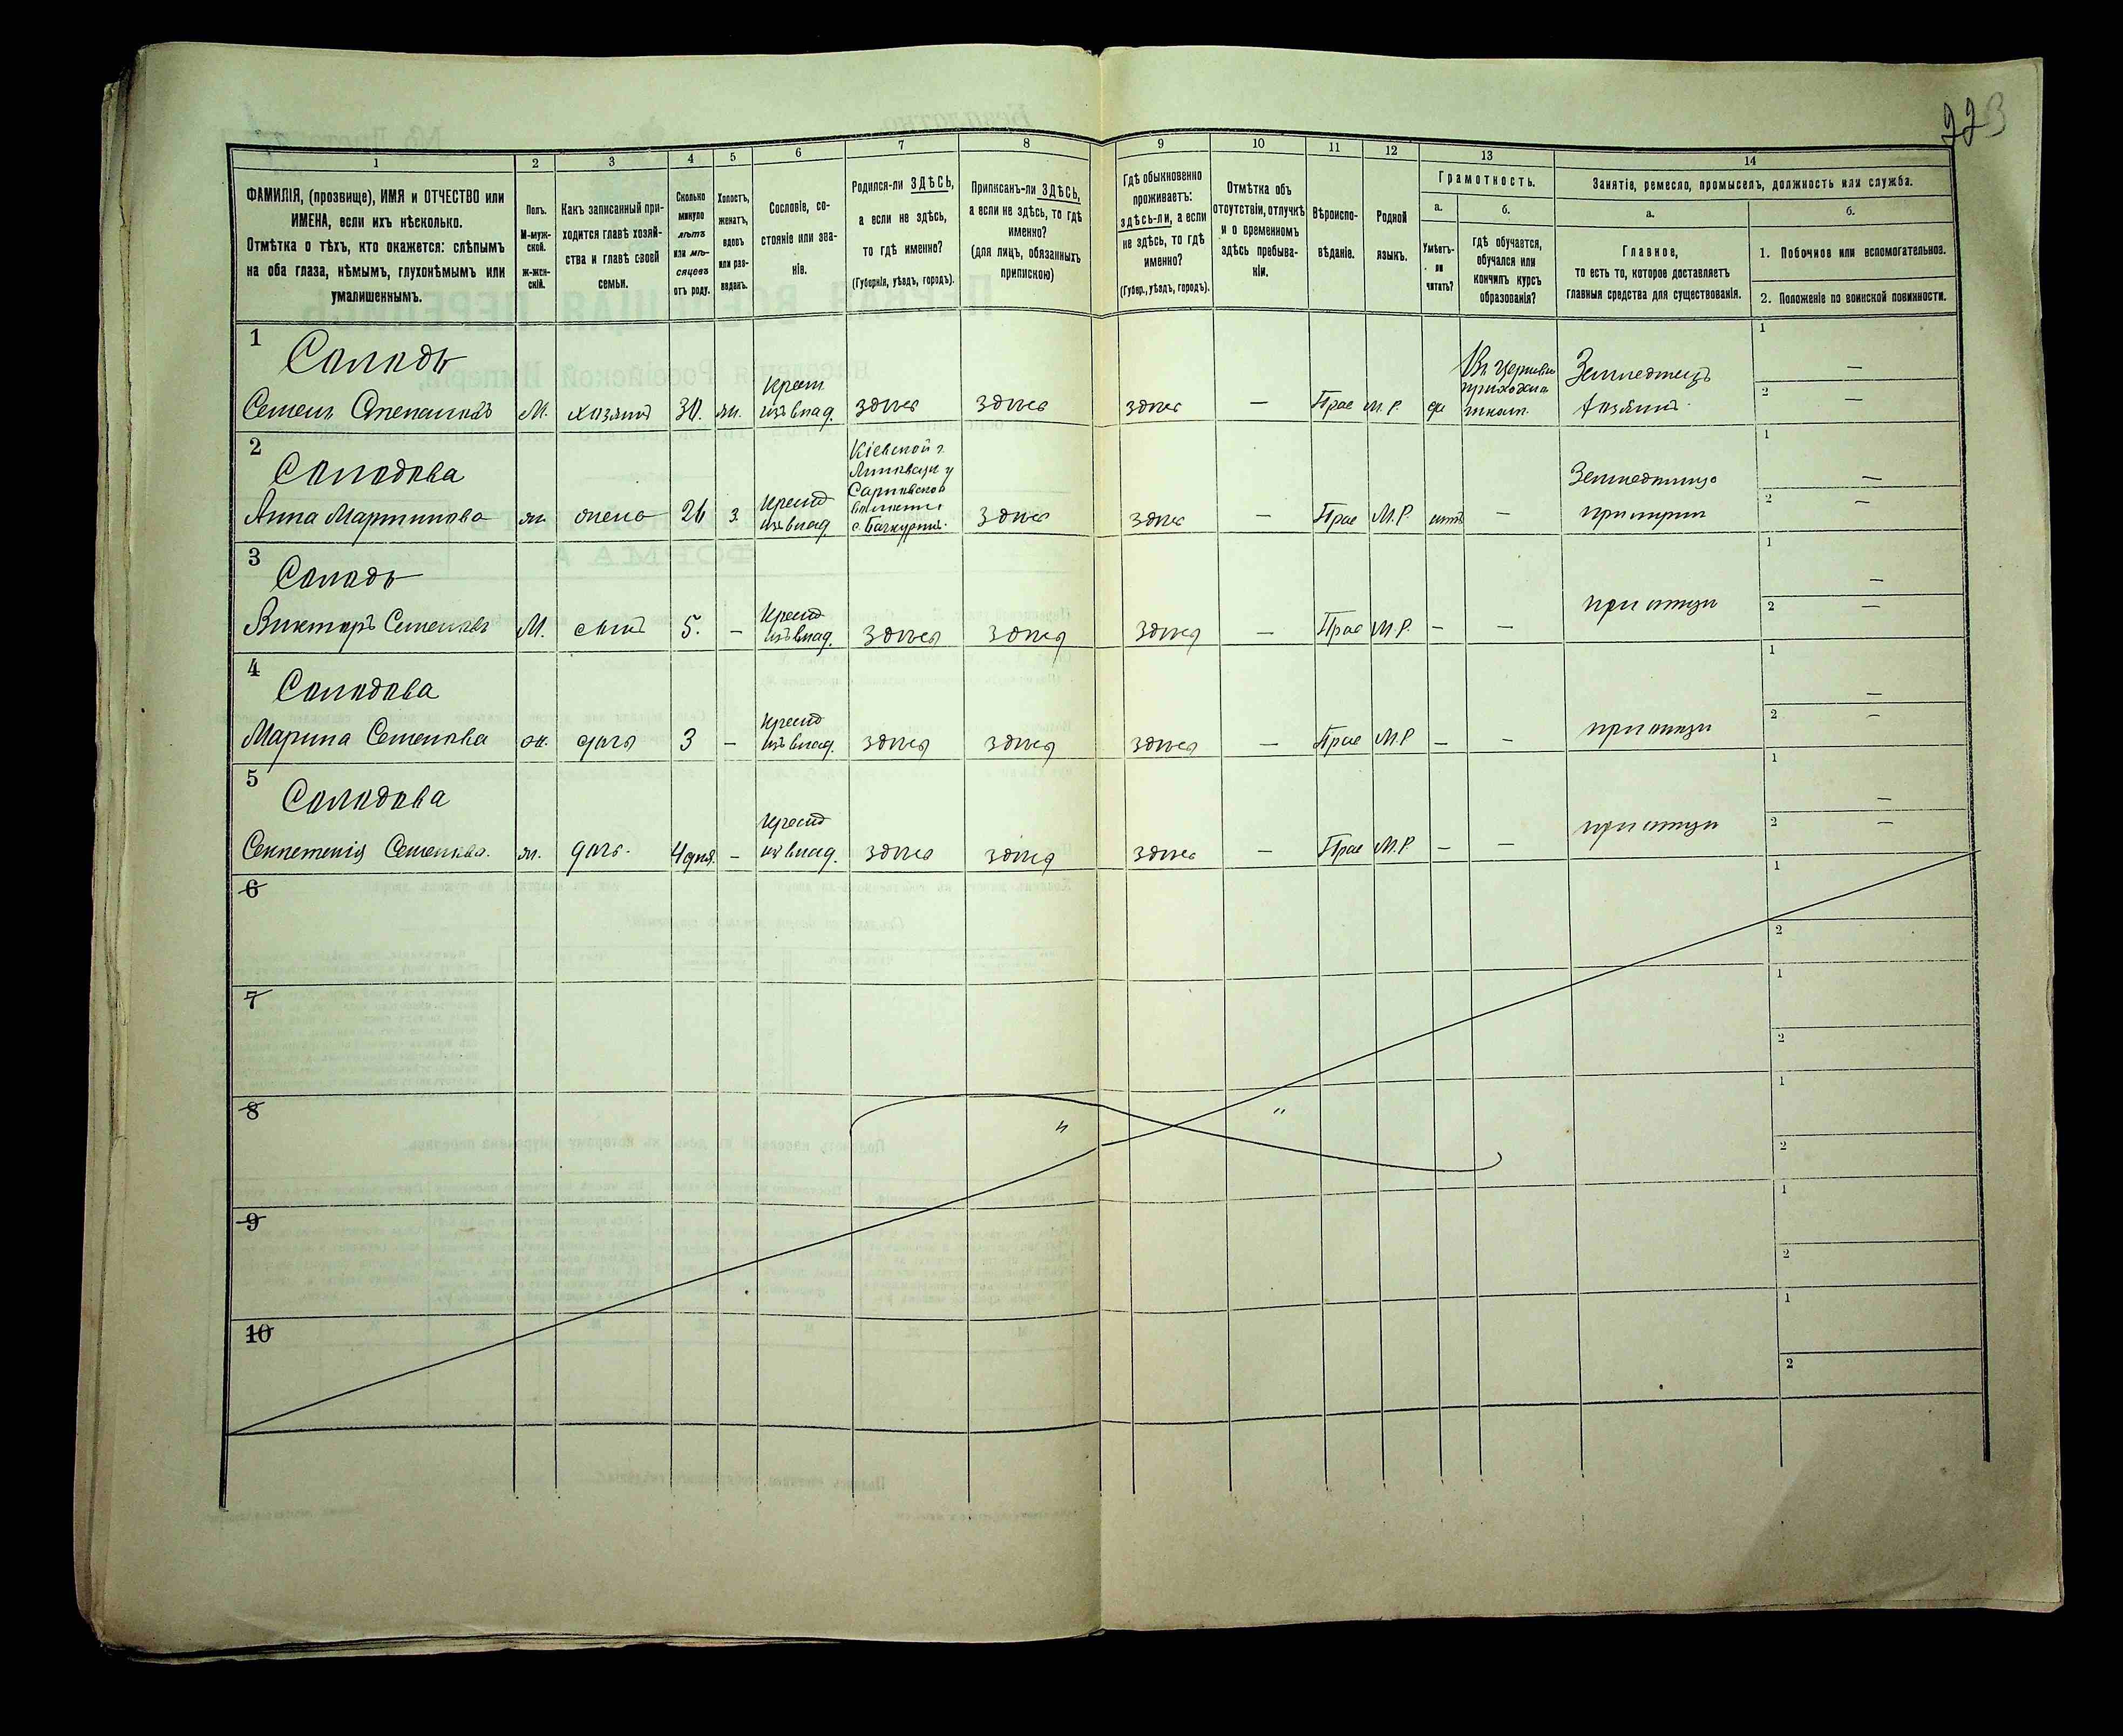 223
1
2
3
4
5
6
7
8
9
10
11
12
13
14
ФАМИЛІЯ, (прозвище), ИМЯ и ОТЧЕСТВО или
ИМЕНА, если ихъ нѣсколько.
Отмѣтка о тѣхъ, кто окажется: слѣпымъ
на оба глаза, нѣмымъ, глухонѣмымъ или
умалишеннымъ.
Полъ.
М-муж-
ской.
Ж-жен-
скій.
Какъ записанный при-
ходится главѣ хозяй-
ства и главѣ своей
семьи.
Сколько
минуло
лѣтъ
или мѣ-
сяцевъ
отъ роду.
Холостъ,
женатъ,
вдовъ
или раз-
веденъ.
Сословіе, со-
стояніе или зва-
ніе.
Родился-ли ЗДѢСЬ,
а если не здѣсь,
то гдѣ именно?
(Губернія, уѣздъ, городъ).
Приписанъ-ли ЗДѢСЬ,
а если не здѣсь, то гдѣ
именно?
(для лицъ, обязанныхъ
припискою)
Гдѣ обыкновенно
проживаетъ:
здѣсь-ли, а если
не здѣсь, то гдѣ
именно?
(Губер., уѣздъ, городъ).
Отмѣтка объ
отсутствіи, отлучкѣ
и о временномъ
здѣсь пребыва-
ніи.
Вѣроиспо-
вѣданіе.
Родной
языкъ.
Грамотность.
а.
б.
Умѣетъ-
ли
читать?
Гдѣ обучается,
обучался или
кончилъ курсъ
образованія?
Занятіе, ремесло, промыселъ, должность или служба.
а.
б.
Главное,
то есть то, которое доставляетъ
главныя средства для существованія.
1. Побочное или вспомогательное.
2. Положеніе по воинской повинности.
1
Солодъ
Семенъ Степановъ М. хозяинъ 30. ж. Крест. изъ влад. здѣсь здѣсь здѣсь — Прав М.Р. да
Земледѣлецъ
хозяинъ
1 —
2 —
2
Солодова
Анна Мартинова ж. жена 26 з. Крест изъ влад.
Кіевской г.
Липовецк у
с.
здѣсь здѣсь — Прав М.Р. нѣтъ —
1 —
2 —
3
Солодъ
Викторъ Семеновъ М. сынъ 5. — Крест изъ влад. здѣсь здѣсь здѣсь — Прав М.Р. — —
при отцѣ
1 —
2 —
4
Солодова
Марина Семенова ж. дочь 3 — Крест изъ влад. здѣсь здѣсь здѣсь — Прав М.Р — —
при отцѣ
1 —
2 —
5
Солодова
Семенова. ж. дочь. 4 дня. — Крест изъ влад. здѣсь здѣсь здѣсь — Прав М.Р — —
при отцѣ
1 —
2 —
6
1
2
7
1
2
8
1
2
9
1
2
10
1
2